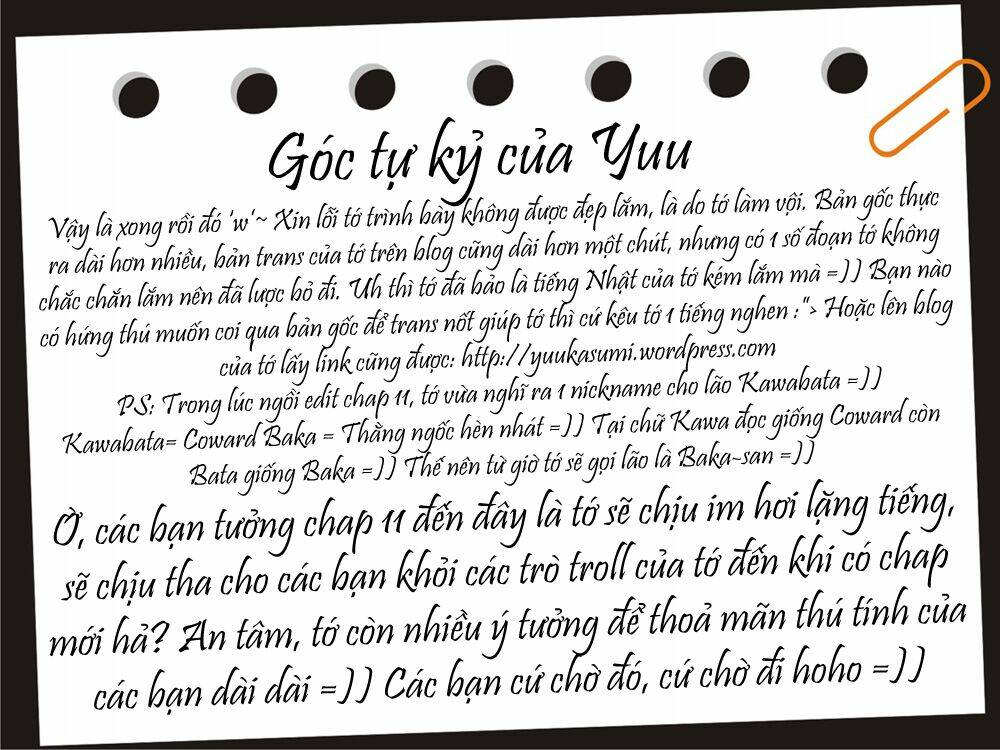 Góc tự kỷ của Yuu
Vậy là xong rồi đó 'w'~ Xin lỗi tớ trình bày không được đẹp lắm, là do tớ làm vội. Bản gốc thực
ra dài hơn nhiều, bản trans của tớ trên blog cũng dài hơn một chút, nhưng có 1 số đoạn tớ không
chắc chắn lắm nên đã lược bỏ đi. Uh thì tớ đã bảo là tiếng Nhật của tớ kém lắm mà =)) Bạn nào
có hứng thú muốn coi qua bản gốc để trans nốt giúp tớ thì cứ kêu tớ 1 tiếng nghen :"> Hoặc lên blog
của tớ lấy link cũng được: http://yuukasumi.wordpress.com
PS: Trong lúc ngồi edit chap 11, tớ vừa nghĩ ra 1 nickname cho lão Kawabata =))
Kawabata= Coward Baka = Thằng ngốc hèn nhát =)) Tại chữ Kawa đọc giống Coward còn
Bata giống Baka =)) Thế nên từ giờ tớ sẽ gọi lão là Baka-san =))
Ờ, các bạn tưởng chap 11 đến đây là tớ sẽ chịu im hơi lặng tiếng,
sẽ chịu tha cho các bạn khỏi các trò troll của tớ đến khi có chap
mới hả? An tâm, tớ còn nhiều ý tưởng để thoả mãn thú tính của
các bạn dài dài =)) Các bạn cứ chờ đó, cứ chờ đi hoho =))